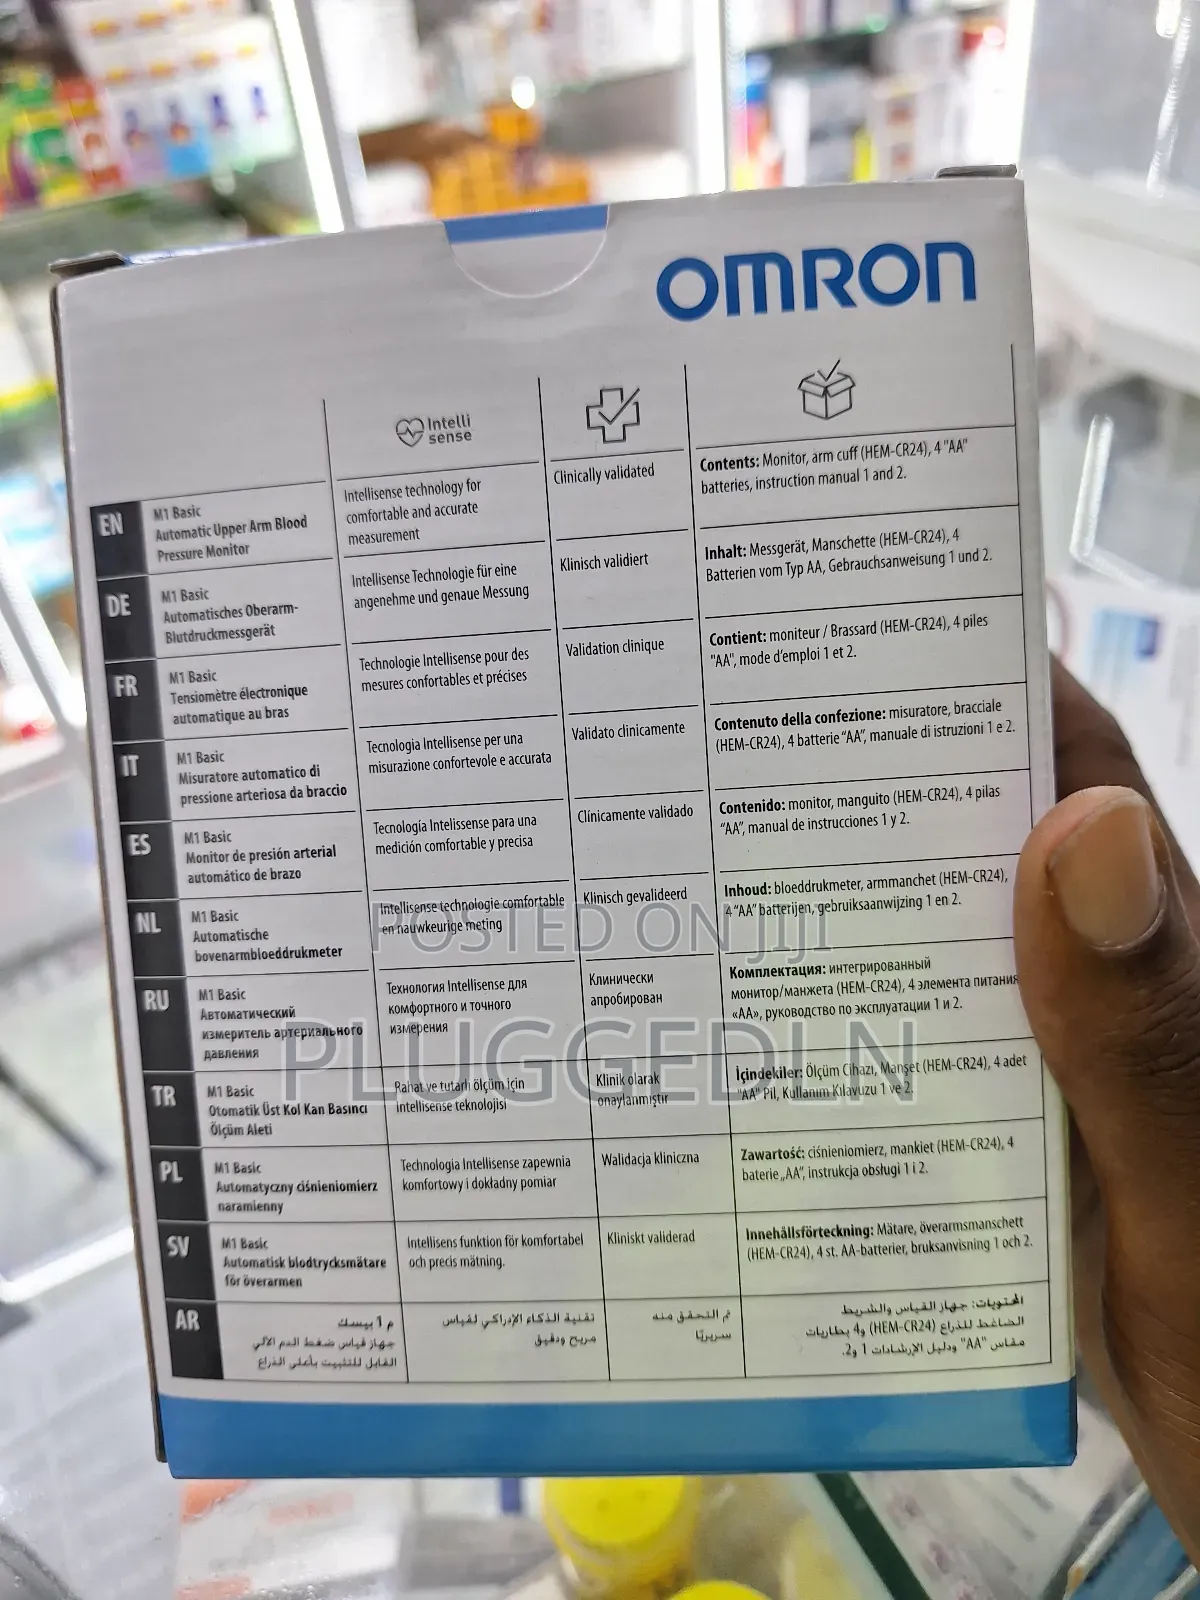 OMRON
Intelli
sense
EN
M1 Basic
Automatic Upper Arm Blood
Pressure Monitor
Intellisense technology for
comfortable and accurate
measurement
Clinically validated
Contents: Monitor, arm cuff (HEM-CR24), 4 "AA"
batteries, instruction manual 1 and 2.
DE
M1 Basic
Automatisches Oberarm-
Blutdruckmessgerät
Intellisense Technologie für eine
angenehme und genaue Messung
Klinisch validiert
Inhalt: Messgerät, Manschette (HEM-CR24), 4
Batterien vom Typ AA, Gebrauchsanweisung 1 und 2.
FR
M1 Basic
Tensiomètre électronique
automatique au bras
Technologie Intellisense pour des
mesures confortables et précises
Validation clinique
Contient: moniteur / Brassard (HEM-CR24), 4 piles
"AA", mode d'emploi 1 et 2.
IT
M1 Basic
Misuratore automatico di
pressione arteriosa da braccio
Tecnologia Intellisense per una
misurazione confortevole e accurata
Validato clinicamente
Contenuto della confezione: misuratore, bracciale
(HEM-CR24), 4 batterie "AA", manuale di istruzioni 1 e 2.
ES
M1 Basic
Monitor de presión arterial
automático de brazo
Tecnología Intelissense para una
medición comfortable y precisa
Clínicamente validado
Contenido: monitor, manguito (HEM-CR24), 4 pilas
"AA", manual de instrucciones 1 y 2.
NL
M1 Basic
Automatische
bovenarmbloeddrukmeter
Intellisense technologie comfortable
en nauwkeurige meting
Klinisch gevalideerd
Inhoud: bloeddrukmeter, armmanchet (HEM-CR24),
4 "AA" batterijen, gebruiksaanwijzing 1 en 2.
POSTED ON JIJI
RU
M1 Basic
Автоматический
измеритель артериального
давления
Технология Intellisense для
комфортного и точного
измерения
Клинически
апробирован
Комплектация: интегрированный
монитор/манжета (HEM-CR24), 4 элемента питания
«AA», руководство по эксплуатации 1 и 2.
PLUGGEDLN
TR
M1 Basic
Otomatik Üst Kol Kan Basıncı
Ölçüm Aleti
Rahat ve tutarlı ölçüm için
intellisense teknolojisi
Klinik olarak
onaylanmıştır
İçindekiler: Ölçüm Cihazı, Manşet (HEM-CR24), 4 adet
"AA" Pil, Kullanım Kılavuzu 1 ve 2.
PL
M1 Basic
Automatyczny ciśnieniomierz
naramienny
Technologia Intellisense zapewnia
komfortowy i dokładny pomiar
Walidacja kliniczna
Zawartość: ciśnieniomierz, mankiet (HEM-CR24), 4
baterie „AA", instrukcja obsługi 1 i 2.
SV
M1 Basic
Automatisk blodtrycksmätare
för överarmen
Intellisens funktion för komfortabel
och precis mätning.
Kliniskt validerad
Innehållsförteckning: Mätare, överarmsmanschett
(HEM-CR24), 4 st. AA-batterier, bruksanvisning 1 och 2.
AR
م 1 بيسك
جهاز قياس ضغط الدم الآلي
القابل للتثبيت بأعلى الذراع
تقنية الذكاء الإدراكي لقياس
مريح ودقيق
تم التحقق منه
سريريًا
المحتويات: جهاز القياس والشريط
الضاغط للذراع (HEM-CR24) و4 بطاريات
مقاس "AA" ودليل الإرشادات 1 و2.